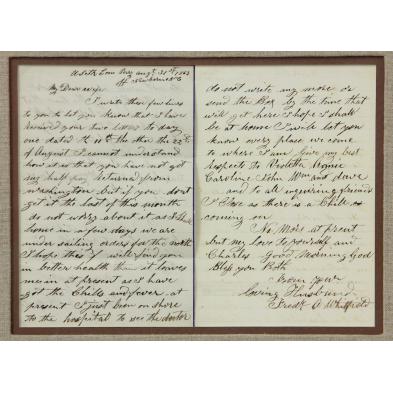 U S Str Lou Bay augt 31st 1863
off Newbern N C
My Dear wife
I wrote these few lines
to you to let you know that I have
received your two letters to day
one dated the 11th the other the 22nd
of August I cannot understand
how it is that you have not got
my half pay returned from
Washington but if you don't
get it the last of this month
do not worry about it as I shall
home in a few days we are
under sailing orders for the north
I hope this will find you
in better health then it leaves
me in at present as I have
got the Chills and fever at
present I just been on shore
to the hospital to see the doctor
do not write my more or
send the Box by the time that
will get here I hope I shall
be at home I will let you
know every place we come
to where I am Give my best
respects to Violetta
Caroline John Wm and dave
and to all inquiring friends
I Close as there is a Chill is
coming on
No More at present
but my Love to yourself and
Charles Good Morning God
Bless you Both
From your
loving Husband
Fredk A Whitfield